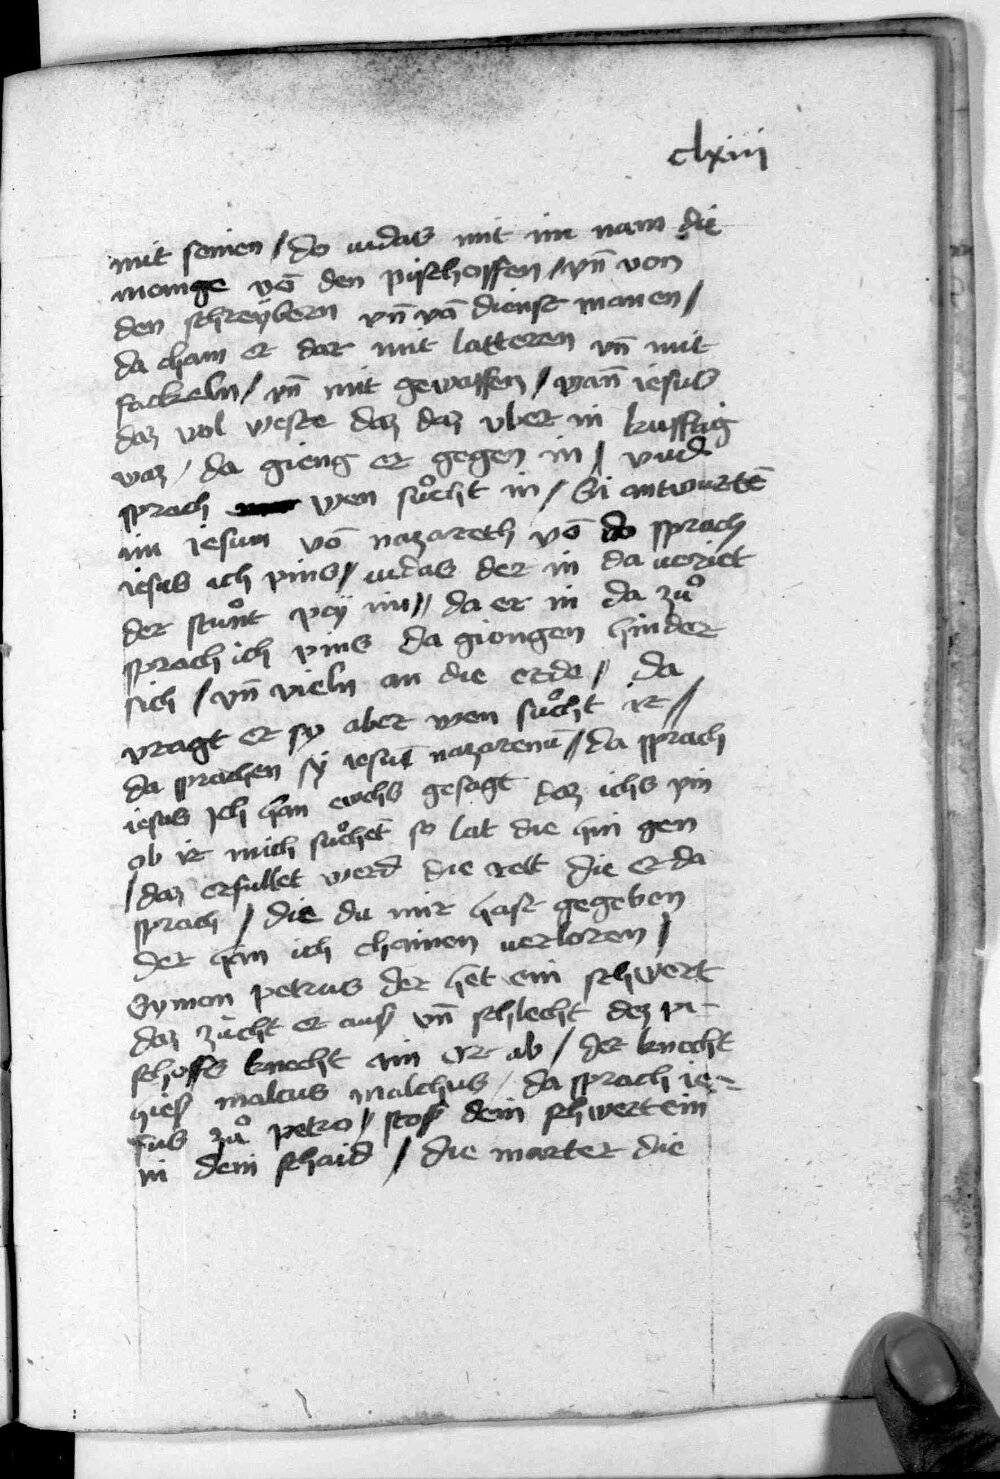 clxiii
mit seinen / do iudas mit im nam die
menge võ den pischoffen / vñ von
den schreybern vñ võ dienst manen /
da cham er dar mit latteren vñ mit
fackeln / vñ mit gewaffen / wañ iesus
daz vol weste daz daz vber in kufftig
waz / da gieng er gegen in / vnd
sprach wen suͦcht in / Si antwurtẽ
im iesum võ nazareth võ do sprach
iesus ich pins / iudas der in da veriet
der stuͦnt pey im // da er in da zuͦ
sprach ich pins da giengen hinder
sich / vñ vieln an die erde / da
vragt er sy aber wen suͦcht ir /
da sprachen sy iesũ nazarenũ // da sprach
iesus Ich han ewchs gesagt daz ichs pin
ob ir mich suͦchet so lat die hin gen
/ daz erfullet werd die rett die er da
sprach / die du mir hast gegeben
der han ich chainen verloren /
Symon petrus der het ein schwert
daz zucht er aus vñ schlecht dez pi-
schoffs knecht ein or ab / der knecht
hies malcus malchus / da sprach ie-
sus zuͦ petro / stos dein schwert ein
in dein schaid / die marter die